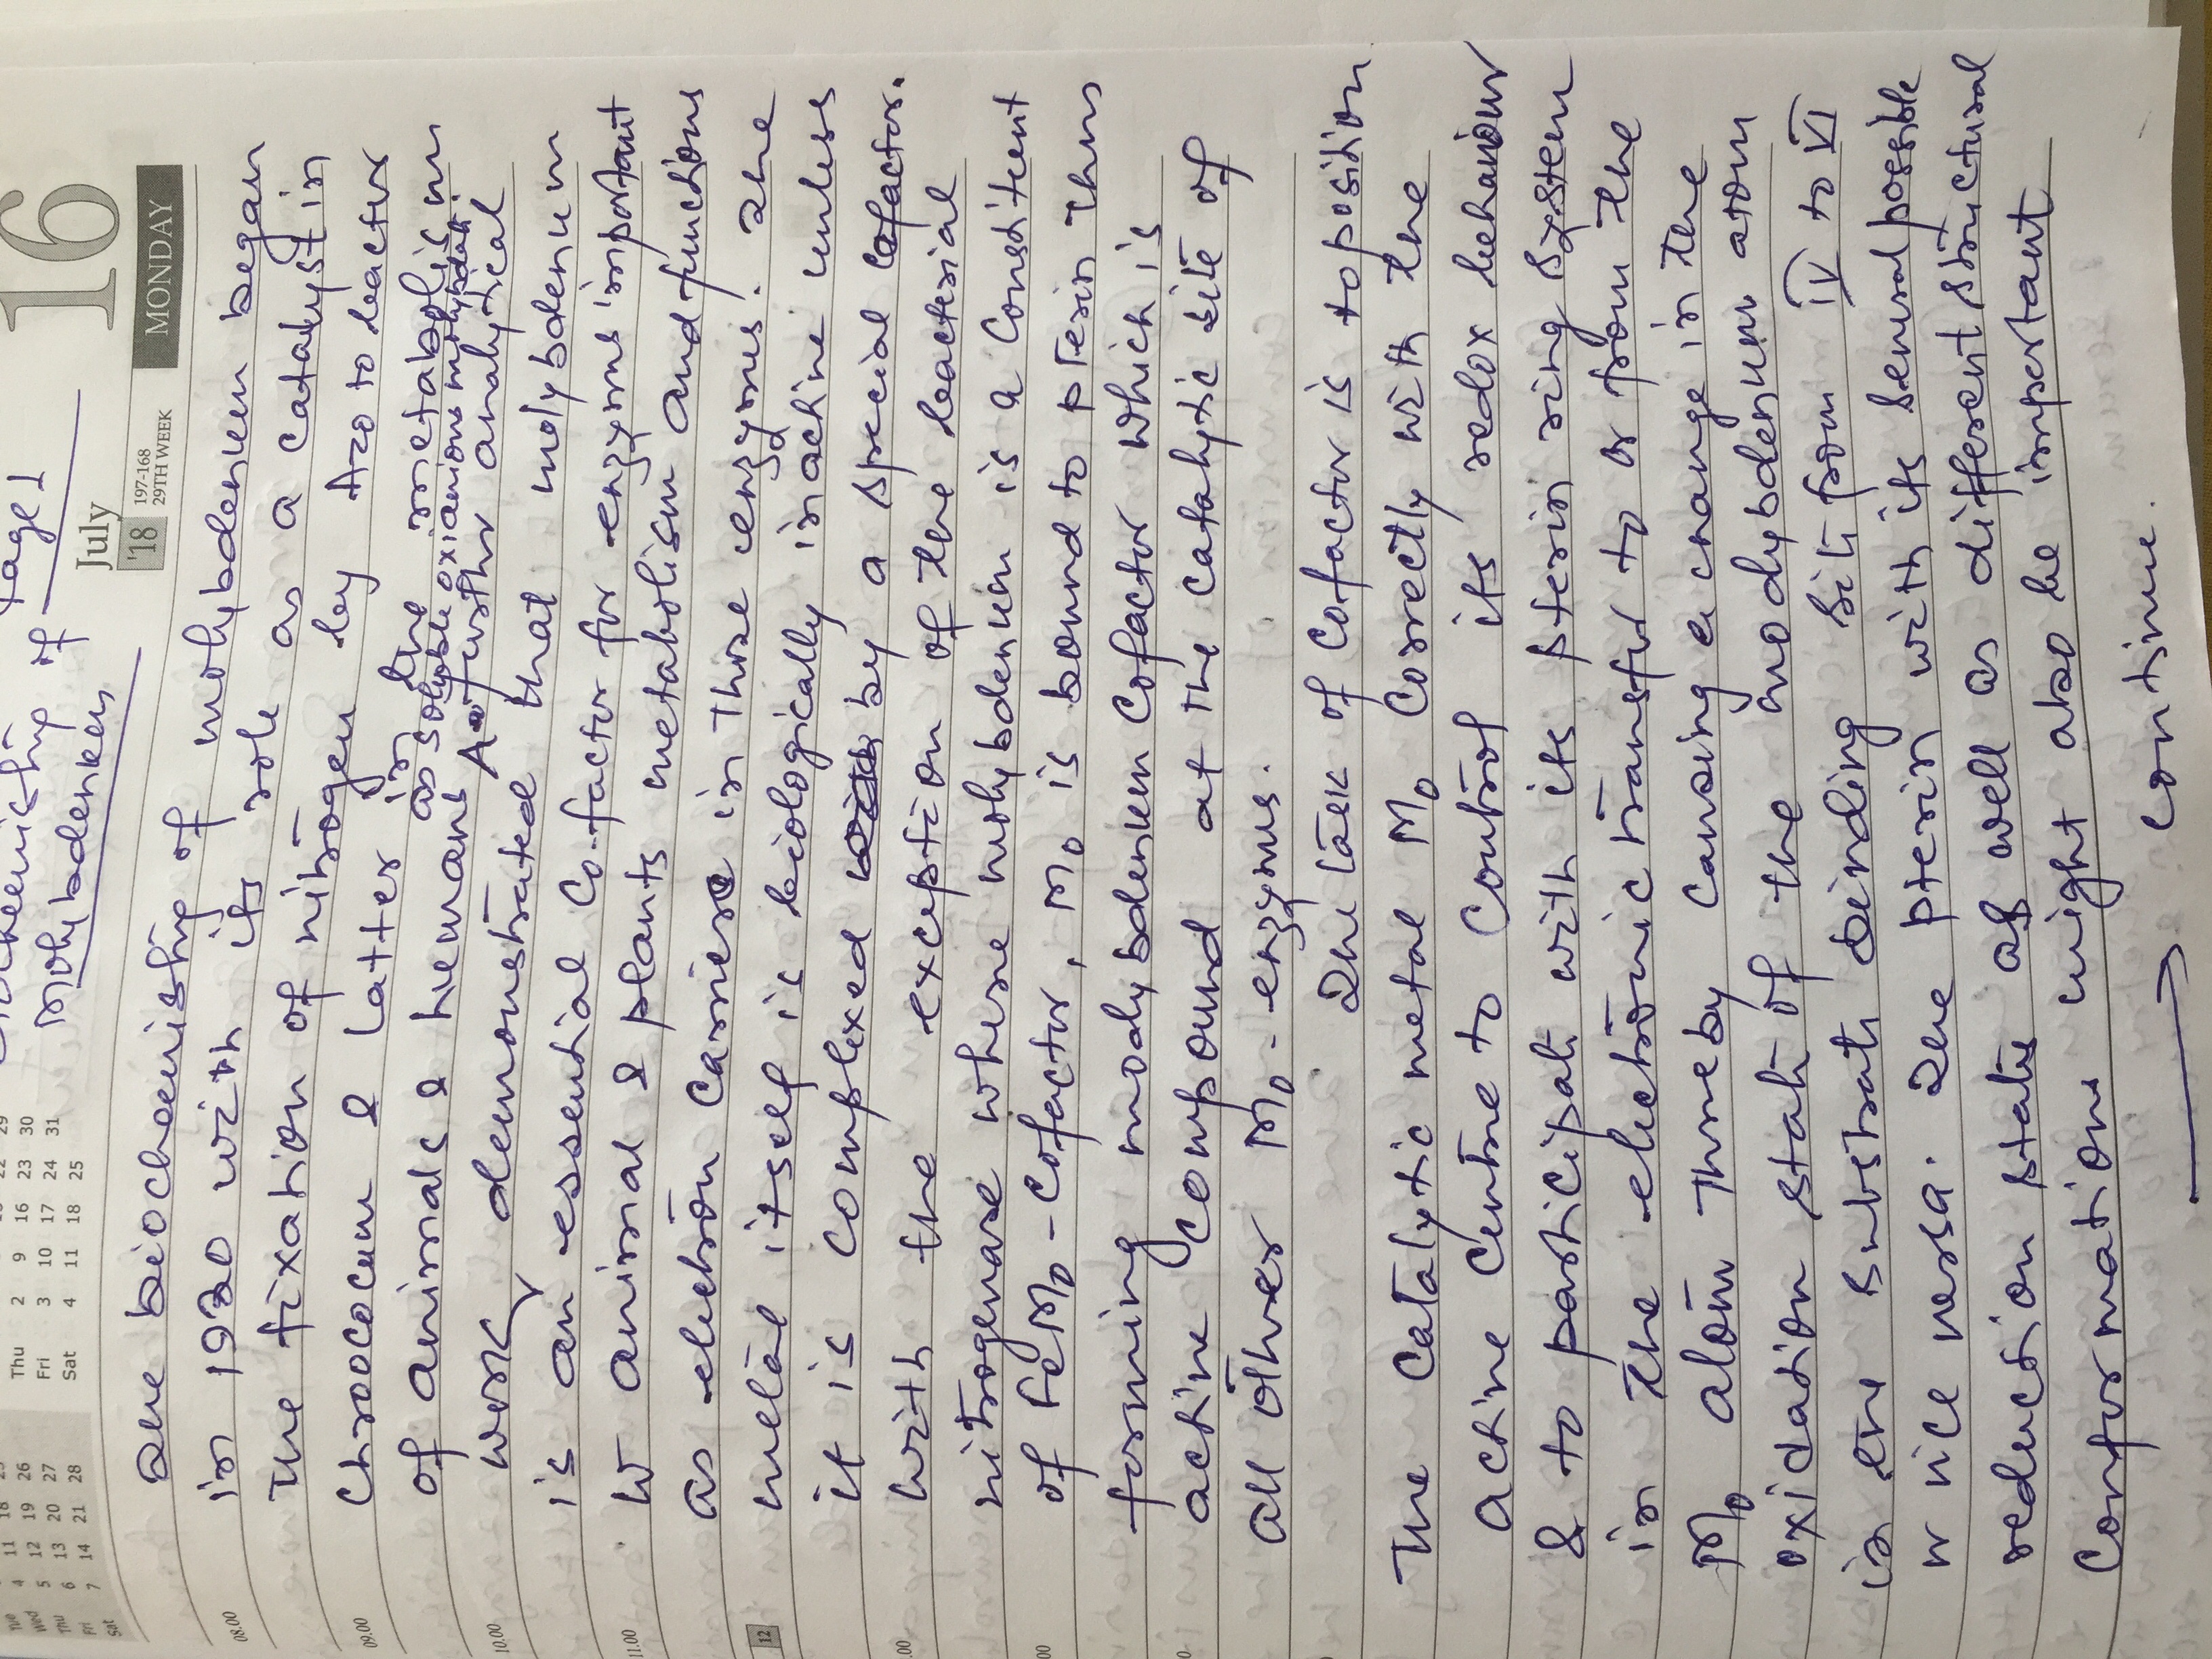 Page 1
Biochemistry of
Molybdenum
July
16
'18
197-168
29TH WEEK
MONDAY
22 29
2 9 16 23 30
3 10 17 24 31
4 11 18 25
Thu
Fri
Sat
Tue 4 11 18 25
Wed 5 12 19 26
Thu 6 13 20 27
Fri 7 14 21 28
Sat
The biochemistry of molybdenum began
08.00 in 1930 with its role as a catalyst in
the fixation of nitrogen by Azotobactur
09.00 Chroococum & latter in the metabolism
of animals & humans as soluble oxianions molybdat.
10.00 work A further analytical
demonstrated that molybdenum
is an essential Co-factor for enzyms important
11.00 in animal & plants metabolism and functions
as electron Carriere in these enzyms. The
12 metal itself is biologically inactive unless
it is complexed by a special cofactor.
.00 with the exception of the bacterial
nitrogenase where molybdenum is a Constituent
00 of FeMo-Cofactor, Mo is bound to pterin thus
forming molybdenum Cofactor which is
active compound at the catalytic site of
all other Mo-enzyms.
The task of cofactor is to position
The catalytic metal Mo Correctly with the
active Centre to Control its redox behaviour
& to participate with its pterin ring system
in the electronic transfer to or from the
Mo atom thereby causing a change in the
oxidation state of the molybdenum atom
in the substrate binding site from IV to VI
vice versa. The pterin with its several possible
reduction state as well as different structural
Conformations might also be important
→ Continue.